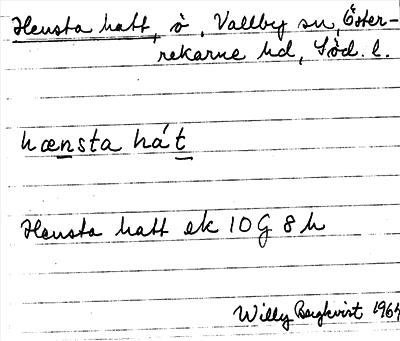 Hensta hatt, ö, Vallby sn, Öster-
rekarne hd, Söd. l.
hænsta há't
Hensta hatt ek 10G 8h
Willy Bergkvist 1964